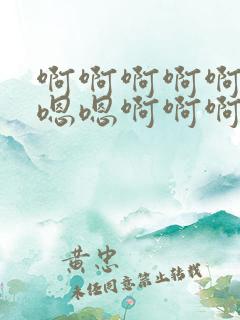 啊啊啊啊啊
嗯嗯啊啊啊
黄忠
未经同意禁止转载